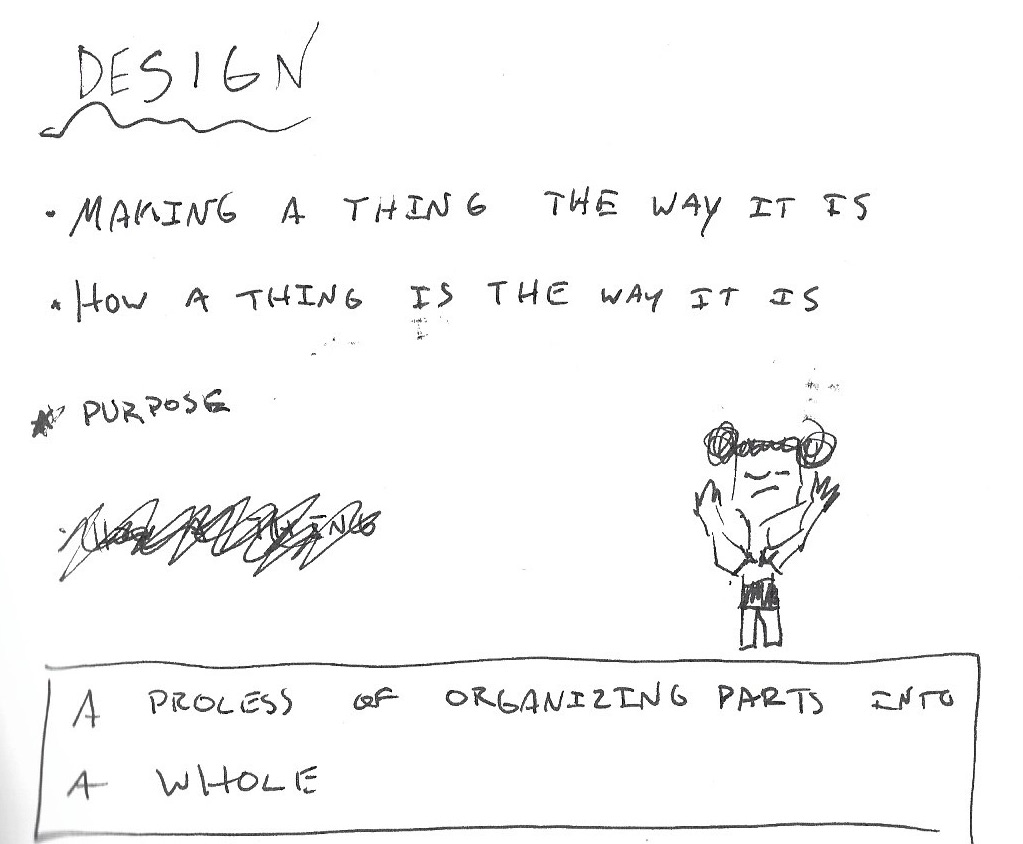 DESIGN
· MAKING A THING THE WAY IT IS
· HOW A THING IS THE WAY IT IS
* PURPOSE
A PROCESS OF ORGANIZING PARTS INTO
A WHOLE